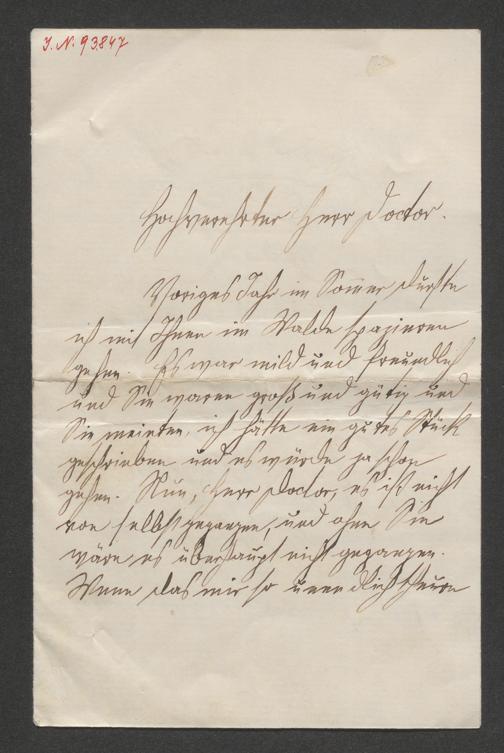 J. N. 93847
Hochverehrter Herr Doctor.
Voriges Jahr im Sommer durfte
ich mit Ihnen im Walde spazieren
gehen. Es war mild und freundlich
und Sie waren groß und gütig und
Sie meinten, ich hätte ein gutes Stück
geschrieben und es würde ja schon
gehen. Nun, Herr Doctor, es ist nicht
von selbst gegangen, und ohne Sie
wäre es überhaupt nicht gegangen.
Wenn das mir so unendlich theure